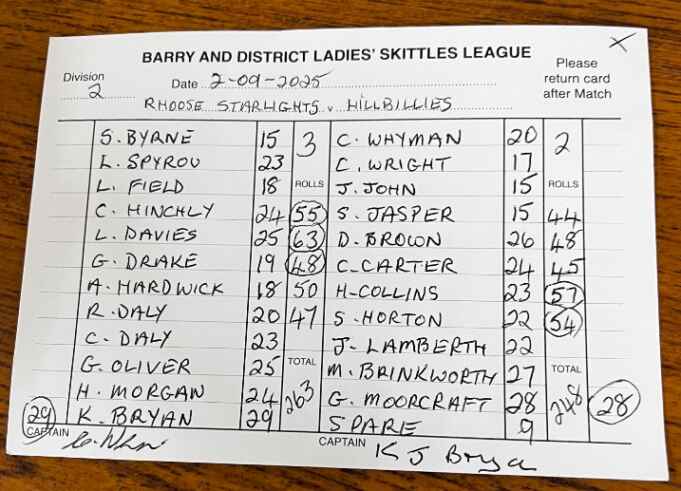 BARRY AND DISTRICT LADIES' SKITTLES LEAGUE
Please return card after Match
Division 2
Date 2-09-2025
RHOOSE STARLIGHTS v HILLBILLIES
S. BYRNE 15 3 C. WHYMAN 20 2
L. SPYROU 23 C. WRIGHT 17
L. FIELD 18 ROLLS J. JOHN 15 ROLLS
C. HINCHLY 24 55 S. JASPER 15 44
L. DAVIES 25 63 D. BROWN 26 48
G. DRAKE 19 48 C. CARTER 24 45
A. HARDWICK 18 50 H. COLLINS 23 57
R. DALY 20 47 S. HORTON 22 54
C. DALY 23 J. LAMBERTH 22
G. OLIVER 25 TOTAL M. BRINKWORTH 27 TOTAL
H. MORGAN 24 263 G. MOORCRAFT 28 248 28
29 K. BRYAN 29 SPARE 9
CAPTAIN
CAPTAIN K J Bryan